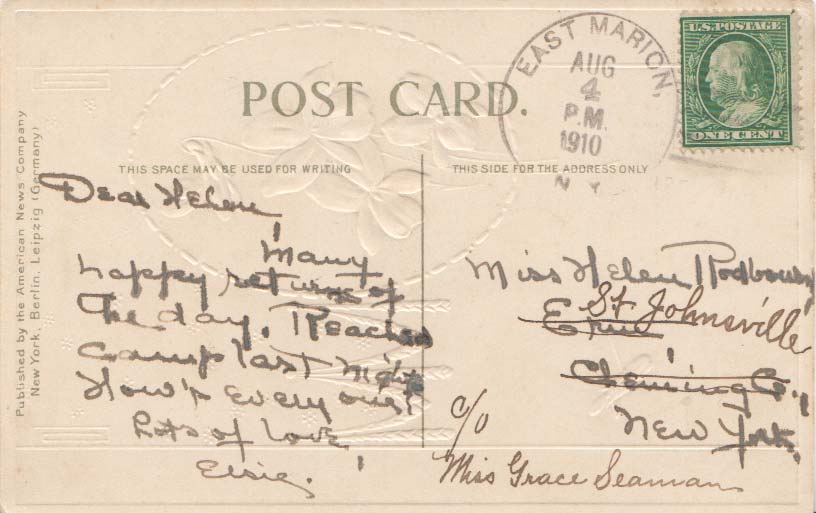 Published by the American News Company
New York, Berlin, Leipzig (Germany)
POST CARD.
EAST MARION,
AUG
4
P.M.
1910
N Y
U.S. POSTAGE
ONE CENT
THIS SPACE MAY BE USED FOR WRITING
THIS SIDE FOR THE ADDRESS ONLY
Dear Helen,
Many
happy returns of
the day. Reached
camp last night
How's every one?
Lots of love
Elsie.
Miss Helen
St Johnsville
Erin
Chemung Co.,
New York.
c/o
Miss Grace Seaman